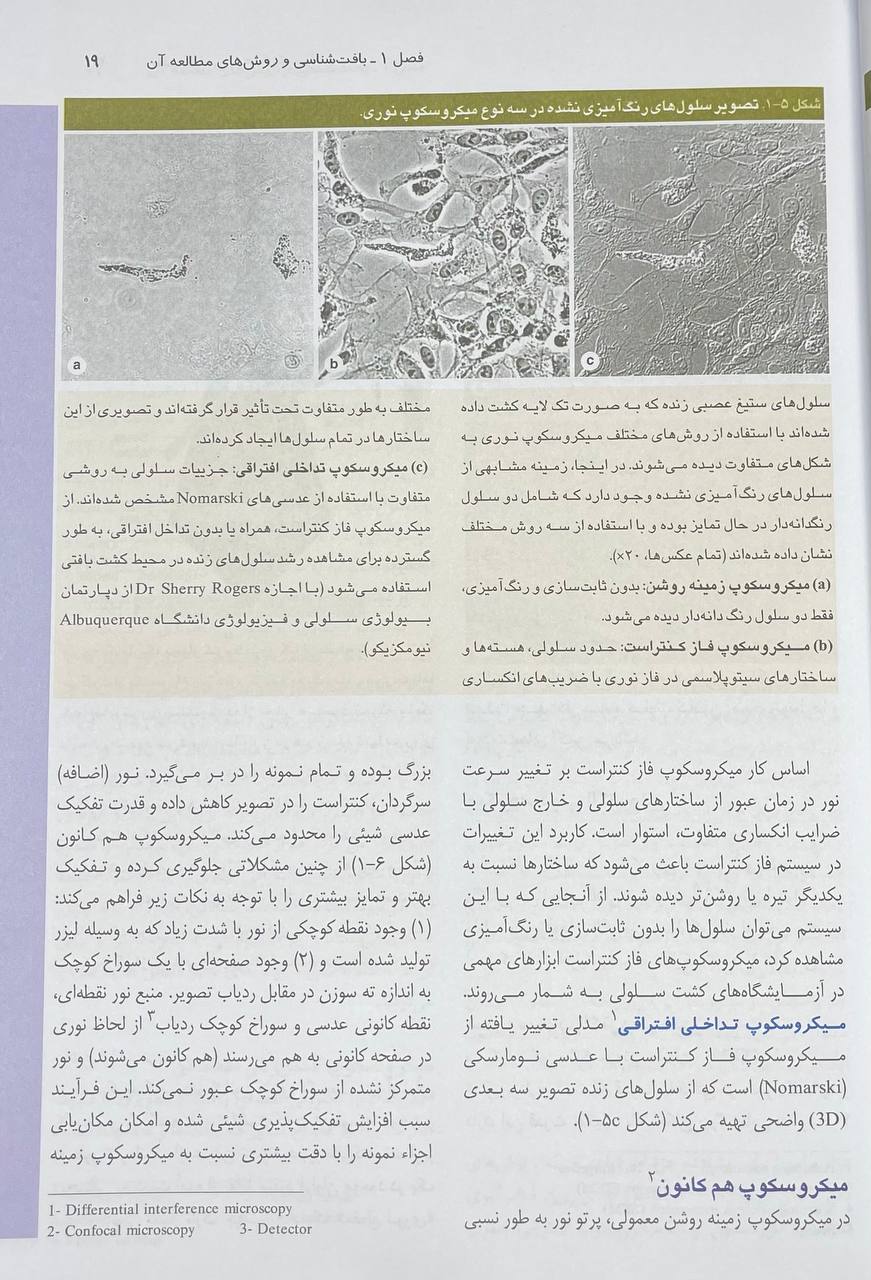 فصل ۱ ـ بافت‌شناسی و روش‌های مطالعه آن
۱۹
شکل ۵-۱. تصویر سلول‌های رنگ‌آمیزی نشده در سه نوع میکروسکوپ نوری.
a
b
c
سلول‌های ستیغ عصبی زنده که به صورت تک لایه کشت داده
شده‌اند با استفاده از روش‌های مختلف میکروسکوپ نوری به
شکل‌های متفاوت دیده می‌شوند. در اینجا، زمینه مشابهی از
سلول‌های رنگ‌آمیزی نشده وجود دارد که شامل دو سلول
رنگدانه‌دار در حال تمایز بوده و با استفاده از سه روش مختلف
نشان داده شده‌اند (تمام عکس‌ها، ۲۰×).
(a) میکروسکوپ زمینه روشن: بدون ثابت‌سازی و رنگ‌آمیزی،
فقط دو سلول رنگ دانه‌دار دیده می‌شود.
(b) میکروسکوپ فاز کنتراست: حدود سلولی، هسته‌ها و
ساختارهای سیتوپلاسمی در فاز نوری با ضریب‌های انکساری
مختلف به طور متفاوت تحت تأثیر قرار گرفته‌اند و تصویری از این
ساختارها در تمام سلول‌ها ایجاد کرده‌اند.
(c) میکروسکوپ تداخلی افتراقی: جزییات سلولی به روشی
متفاوت با استفاده از عدسی‌های Nomarski مشخص شده‌اند. از
میکروسکوپ فاز کنتراست، همراه یا بدون تداخل افتراقی، به طور
گسترده برای مشاهده رشد سلول‌های زنده در محیط کشت بافتی
استفاده می‌شود (با اجازه Dr Sherry Rogers از دپارتمان
بیولوژی سلولی و فیزیولوژی دانشگاه Albuquerque
نیومکزیکو).
اساس کار میکروسکوپ فاز کنتراست بر تغییر سرعت
نور در زمان عبور از ساختارهای سلولی و خارج سلولی با
ضرایب انکساری متفاوت، استوار است. کاربرد این تغییرات
در سیستم فاز کنتراست باعث می‌شود که ساختارها نسبت به
یکدیگر تیره یا روشن‌تر دیده شوند. از آنجایی که با این
سیستم می‌توان سلول‌ها را بدون ثابت‌سازی یا رنگ‌آمیزی
مشاهده کرد، میکروسکوپ‌های فاز کنتراست ابزارهای مهمی
در آزمایشگاه‌های کشت سلولی به شمار می‌روند.
میکروسکوپ تداخلی افتراقی۱ مدلی تغییر یافته از
میکروسکوپ فاز کنتراست با عدسی نومارسکی
(Nomarski) است که از سلول‌های زنده تصویر سه بعدی
(3D) واضحی تهیه می‌کند (شکل ۱-۵c).
میکروسکوپ هم کانون۲
در میکروسکوپ زمینه روشن معمولی، پرتو نور به طور نسبی
بزرگ بوده و تمام نمونه را در بر می‌گیرد. نور (اضافه)
سرگردان، کنتراست را در تصویر کاهش داده و قدرت تفکیک
عدسی شیئی را محدود می‌کند. میکروسکوپ هم کانون
(شکل ۶-۱) از چنین مشکلاتی جلوگیری کرده و تفکیک
بهتر و تمایز بیشتری را با توجه به نکات زیر فراهم می‌کند:
(۱) وجود نقطه کوچکی از نور با شدت زیاد که به وسیله لیزر
تولید شده است و (۲) وجود صفحه‌ای با یک سوراخ کوچک
به اندازه ته سوزن در مقابل ردیاب تصویر. منبع نور نقطه‌ای،
نقطه کانونی عدسی و سوراخ کوچک ردیاب۳ از لحاظ نوری
در صفحه کانونی به هم می‌رسند (هم کانون می‌شوند) و نور
متمرکز نشده از سوراخ کوچک عبور نمی‌کند. این فرآیند
سبب افزایش تفکیک‌پذیری شیئی شده و امکان مکان‌یابی
اجزاء نمونه را با دقت بیشتری نسبت به میکروسکوپ زمینه
1- Differential interference microscopy
2- Confocal microscopy 3- Detector